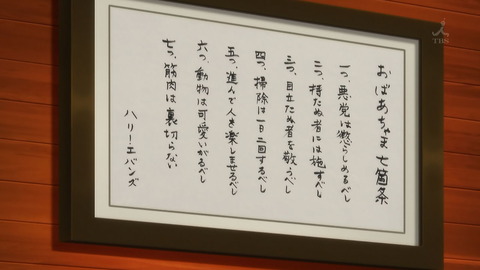 おばあちゃま七箇条
一つ、悪党は懲らしめるべし
二つ、持たぬ者には施すべし
三つ、目立たぬ者を敬うべし
四つ、掃除は一日二回するべし
五つ、進んで人を楽しませるべし
六つ、動物は可愛いがるべし
七つ、筋肉は裏切らない
ハリー!エバンズ
TBS